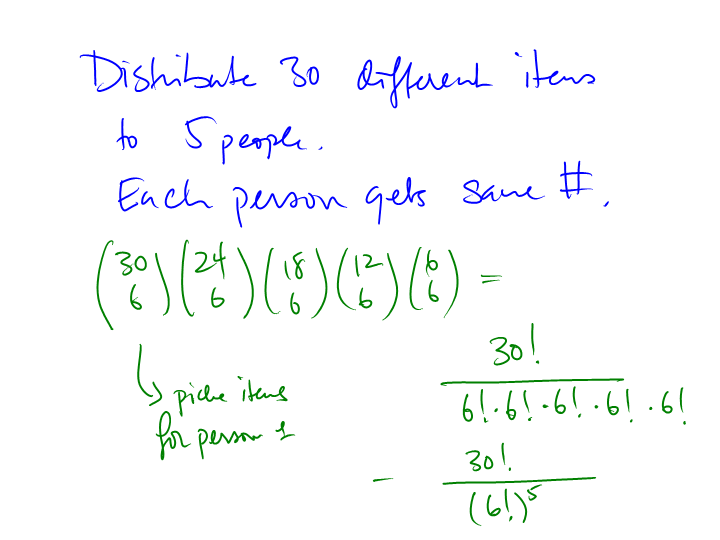 Distribute 30 different items
to 5 people.
Each person gets same #.
(30 6)(24 6)(18 6)(12 6)(6 6) =
30!
6!·6!·6!·6!·6!
↳ picke items
for person 1
30!
= (6!)^5